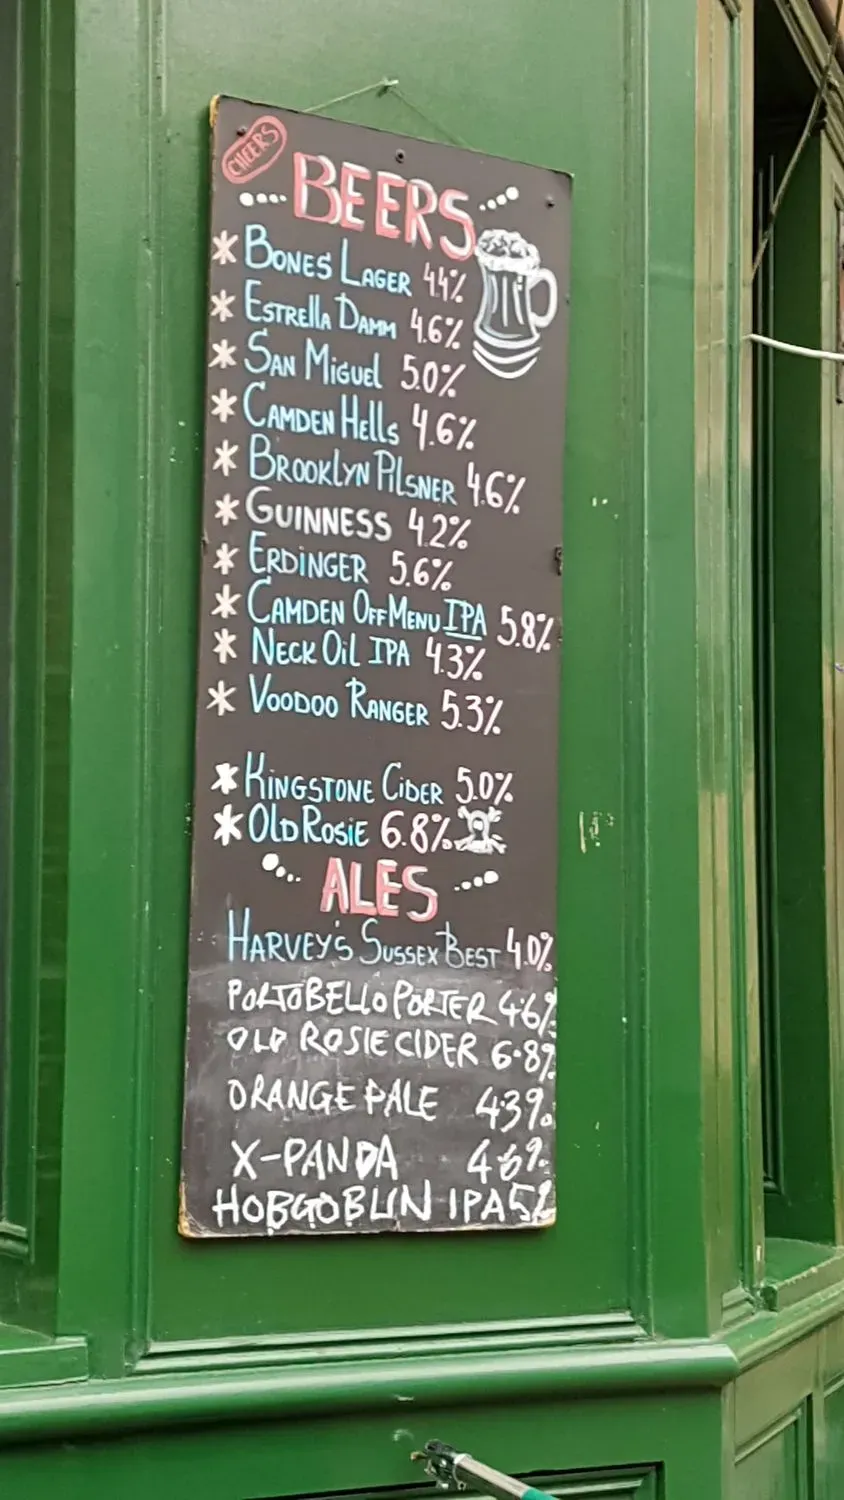 CHEERS
BEERS
* BONES LAGER 4.4%
* ESTRELLA DAMM 4.6%
* SAN MIGUEL 5.0%
* CAMDEN HELLS 4.6%
* BROOKLYN PILSNER 4.6%
* GUINNESS 4.2%
* ERDINGER 5.6%
* CAMDEN OFF MENU IPA 5.8%
* NECK OIL IPA 4.3%
* VOODOO RANGER 5.3%
* KINGSTONE CIDER 5.0%
* OLD ROSIE 6.8%
ALES
HARVEY'S SUSSEX BEST 4.0%
PORTOBELLO PORTER 4.6%
OLD ROSIE CIDER 6.8%
ORANGE PALE 4.3%
X-PANDA
HOBGOBLIN IPA 5%